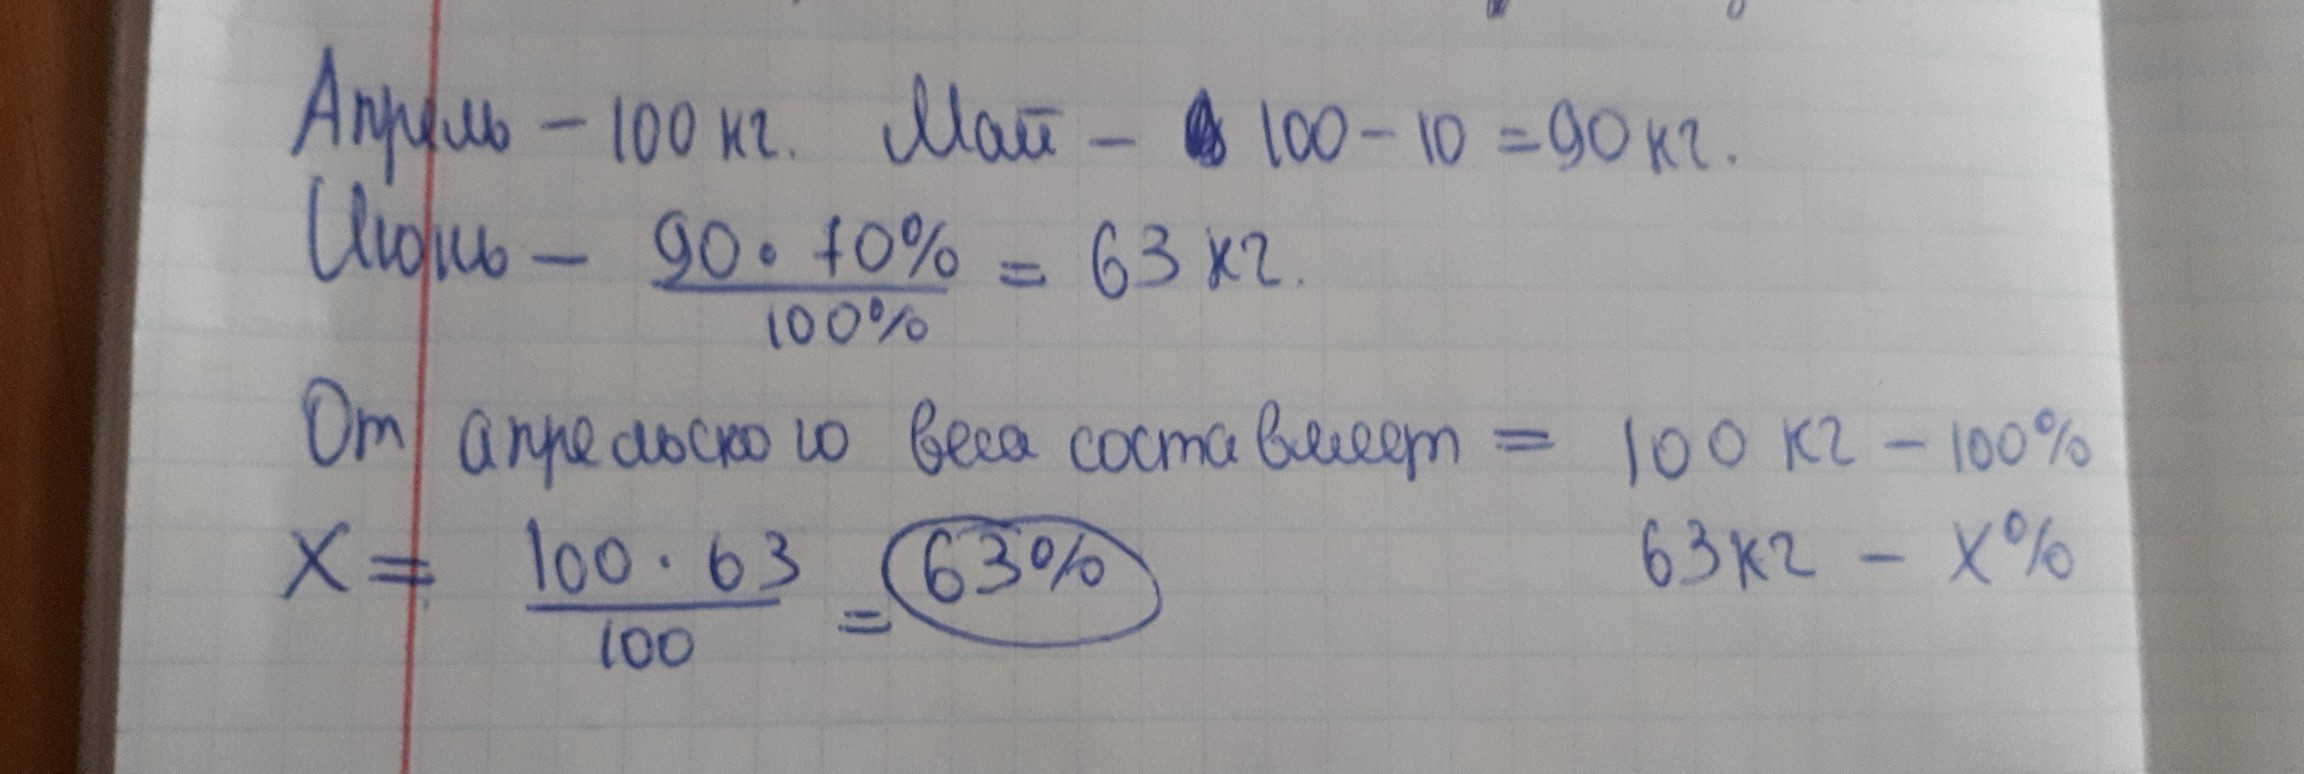 Апрель - 100 кг. Май - 100 - 10 = 90 кг.
Июнь - 90 · 70% / 100% = 63 кг.
От апрельского веса составляет = 100 кг - 100%
63 кг - X%
X = 100 · 63 / 100 = 63%